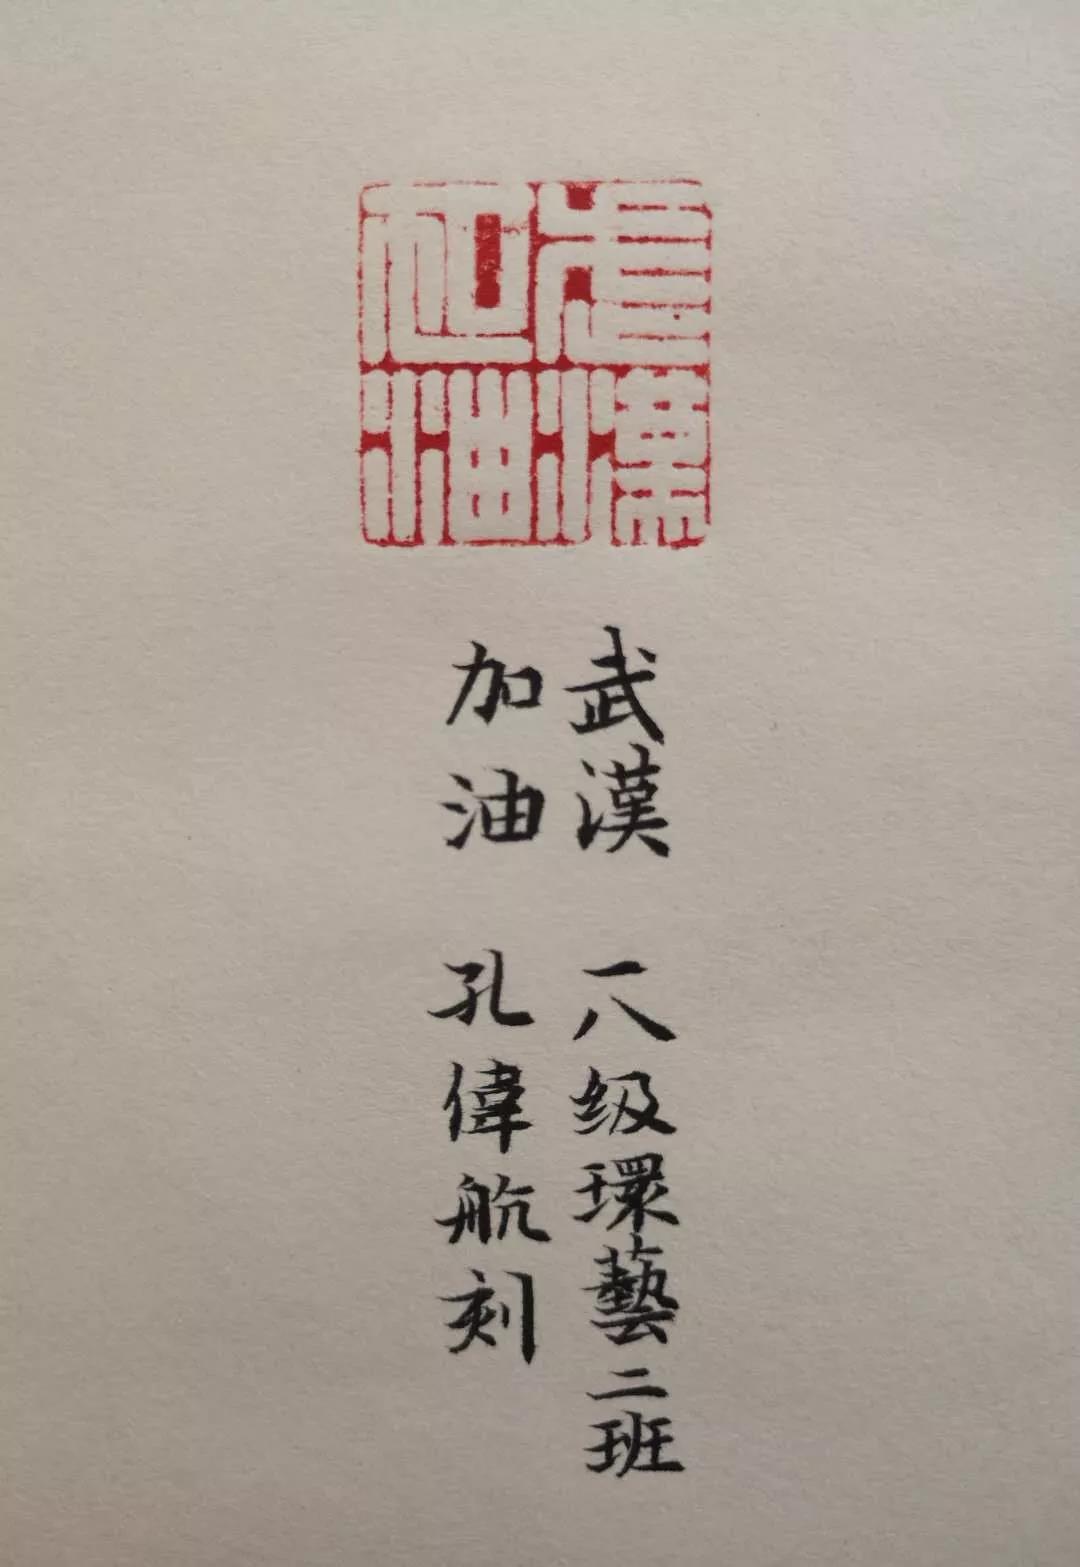 武漢
加油
武漢
加油
一八级環藝二班
孔偉航刻